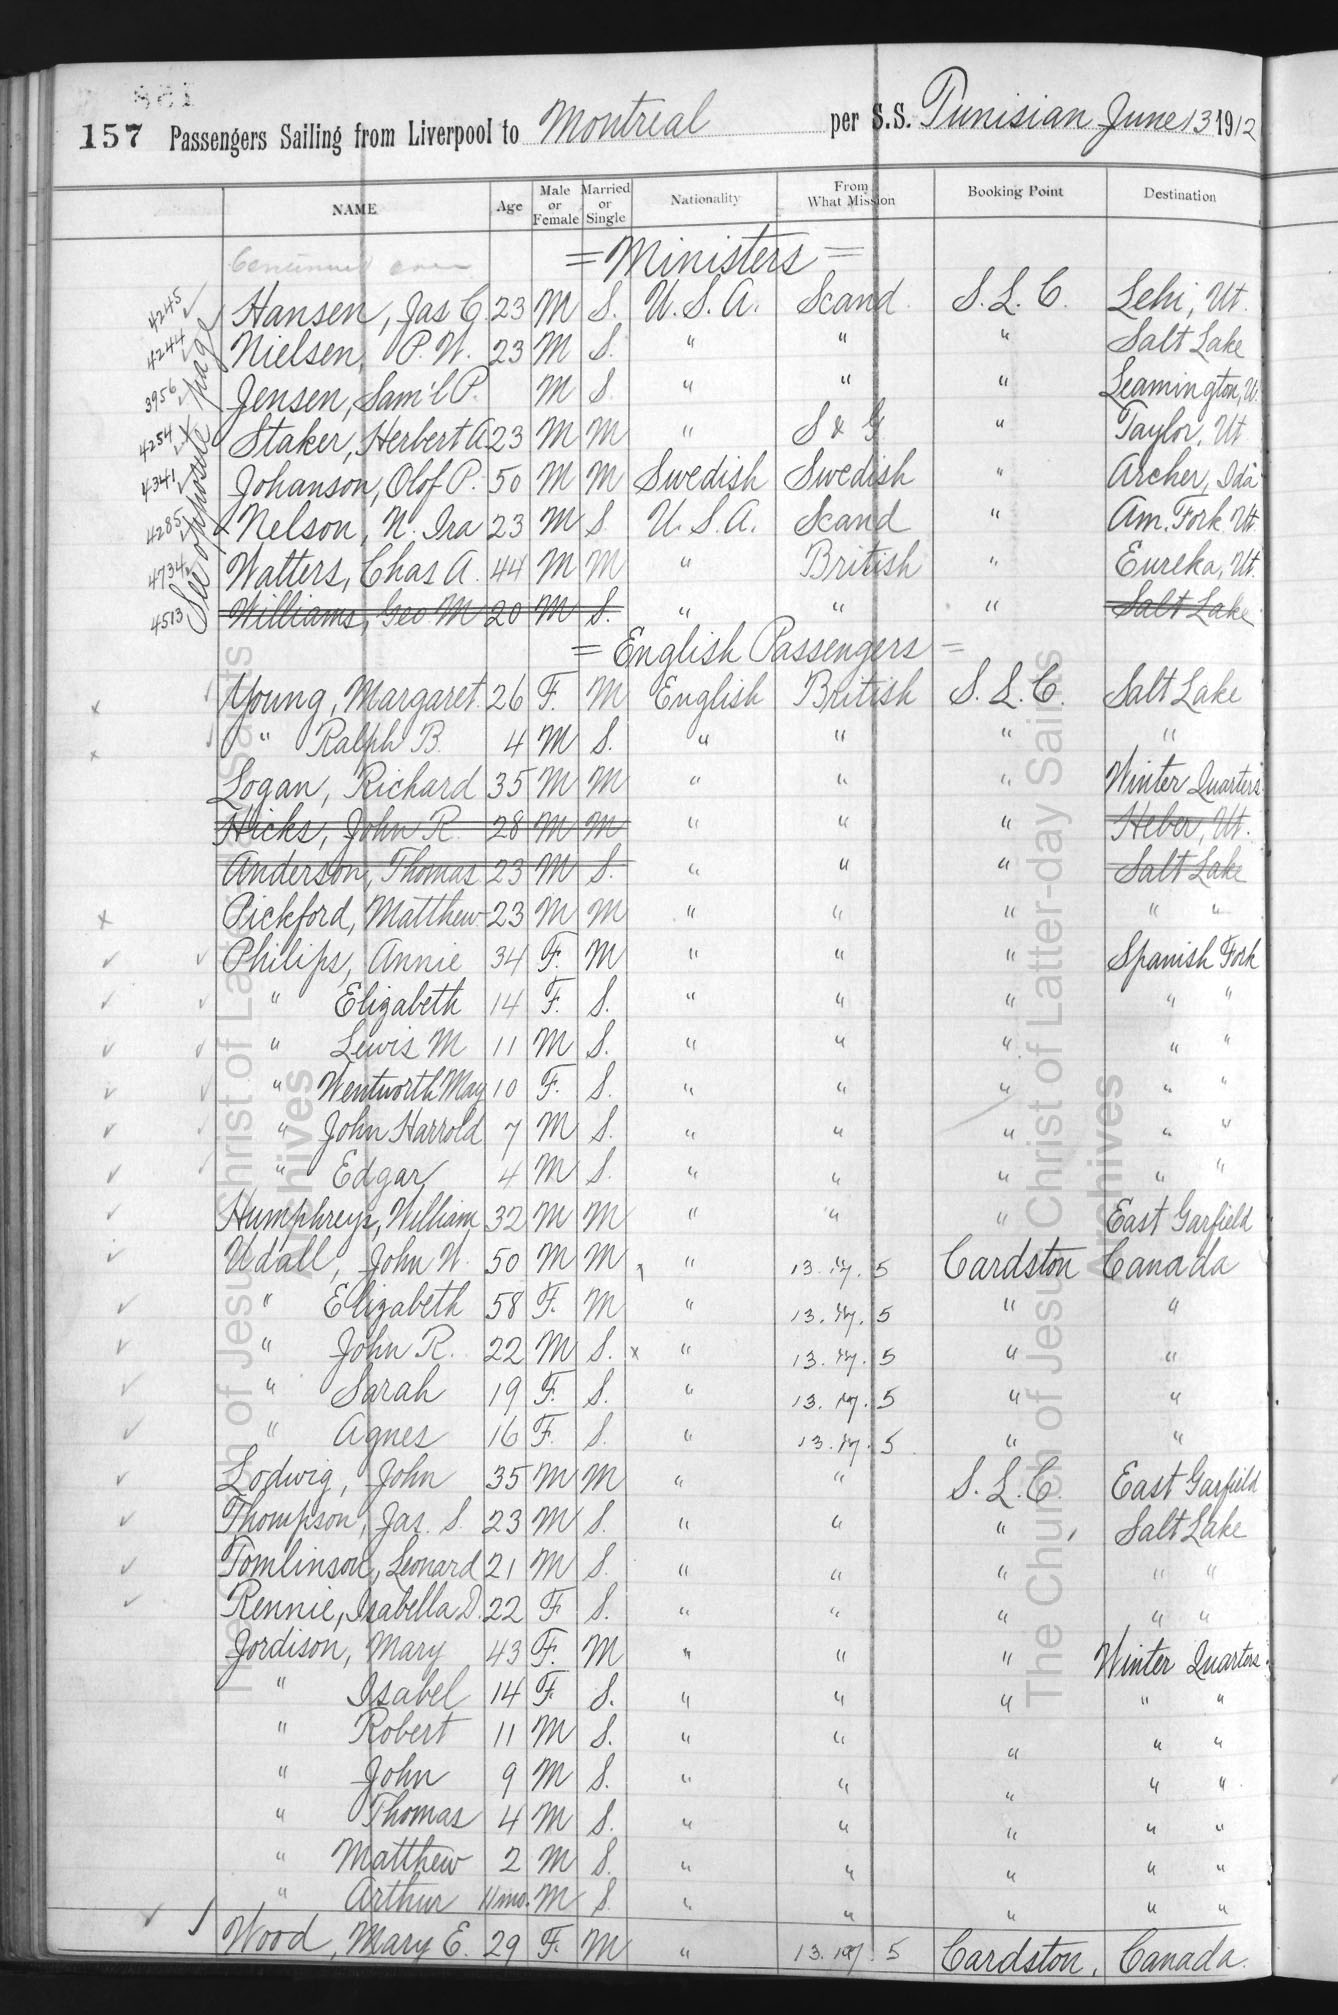 157 Passengers Sailing from Liverpool to Montreal per S.S. Tunisian June 13 1912
NAME Age Male or Female Married or Single Nationality From What Mission Booking Point Destination
Continued over
= Ministers =
See opposite page
4245 Hansen, Jas C. 23 M S. U.S.A. Scand S.L.C. Lehi, Ut.
4244 Nielsen, P.W. 23 M S. " " " Salt Lake
3956 Jensen, Sam'l P. M S. " " " Leamington, U.
4254 Staker, Herbert A 23 M M " S & G " Taylor, Ut
4341 Johanson, Olof P. 50 M M Swedish Swedish " Archer, Ida
4285 Nelson, N. Ira 23 M S U.S.A. Scand " Am. Fork Ut.
4734 Watters, Chas A. 44 M M " British " Eureka, Ut.
4513 Williams, Geo M 20 M S. " " " Salt Lake
= English Passengers =
x Young, Margaret 26 F. M English British S.L.C. Salt Lake
x " Ralph B. 4 M S. " " " "
Logan, Richard 35 M M " " " Winter Quarters
Hicks, John R. 28 M M " " " Heber, Ut.
Anderson, Thomas 23 M S. " " " Salt Lake
x Pickford, Matthew 23 M M " " " " "
Philips, Annie 34 F. M " " " Spanish Fork
" Elizabeth 14 F. S. " " " " "
" Lewis M 11 M S. " " " " "
" Wentworth May 10 F. S. " " " " "
" John Harrold 7 M S. " " " " "
" Edgar 4 M S. " " " " "
Humphreys, William 32 M M " " " East Garfield
Udall, John W. 50 M M " 13. 5 Cardston Canada
" Elizabeth 58 F. M " 13. 5 " "
" John R. 22 M S. x " 13. 5 " "
" Sarah 19 F. S. " 13. 5 " "
" Agnes 16 F. S. " 13. 5 " "
Lodwig, John 35 M M " " S.L.C. East Garfield
Thompson, Jas. S. 23 M S. " " " Salt Lake
Tomlinson, Leonard 21 M S. " " " " "
Rennie, Isabella D. 22 F S. " " " " "
Jordison, Mary 43 F. M " " " Winter Quarters
" Isabel 14 F. S. " " " " "
" Robert 11 M S. " " " " "
" John 9 M S. " " " " "
" Thomas 4 M S. " " " " "
" Matthew 2 M S. " " " " "
" Arthur 11 mo. M S. " " " " "
Wood, Mary E. 29 F. M " 13. 5 Cardston, Canada.
The Church of Jesus Christ of Latter-day Saints
Archives
The Church of Jesus Christ of Latter-day Saints
Archives